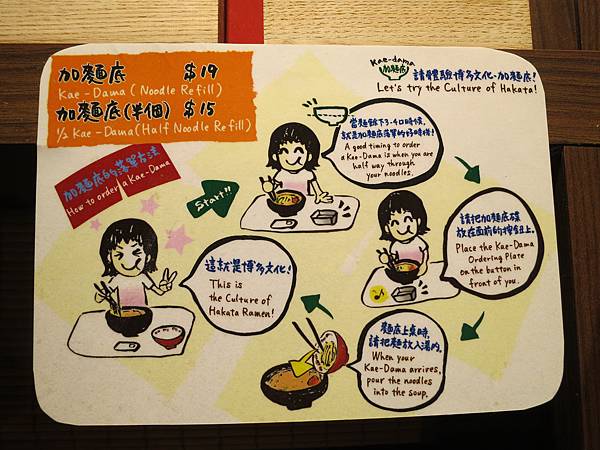 加麵底 $19
Kae-Dama (Noodle Refill)
加麵底(半個) $15
1/2 Kae-Dama (Half Noodle Refill)
Kae-dama
加麵底
請體驗博多文化・加麵底!
Let's try the Culture of Hakata!
加麵底的落單方法
How to order a Kae-Dama
Start!!
當麵餘下3-4口時候,
就是加麵底落單的好時機!
A good timing to order
a Kae-Dama is when you are
half way through
your noodles.
請把加麵底碟
放在面前的按鈕上。
Place the Kae-Dama
Ordering Plate
on the button in
front of you.
麵底上桌時,
請把麵放入湯內。
When your
Kae-Dama arrives,
pour the noodles
into the soup.
這就是博多文化!
This is
the Culture of
Hakata Ramen!